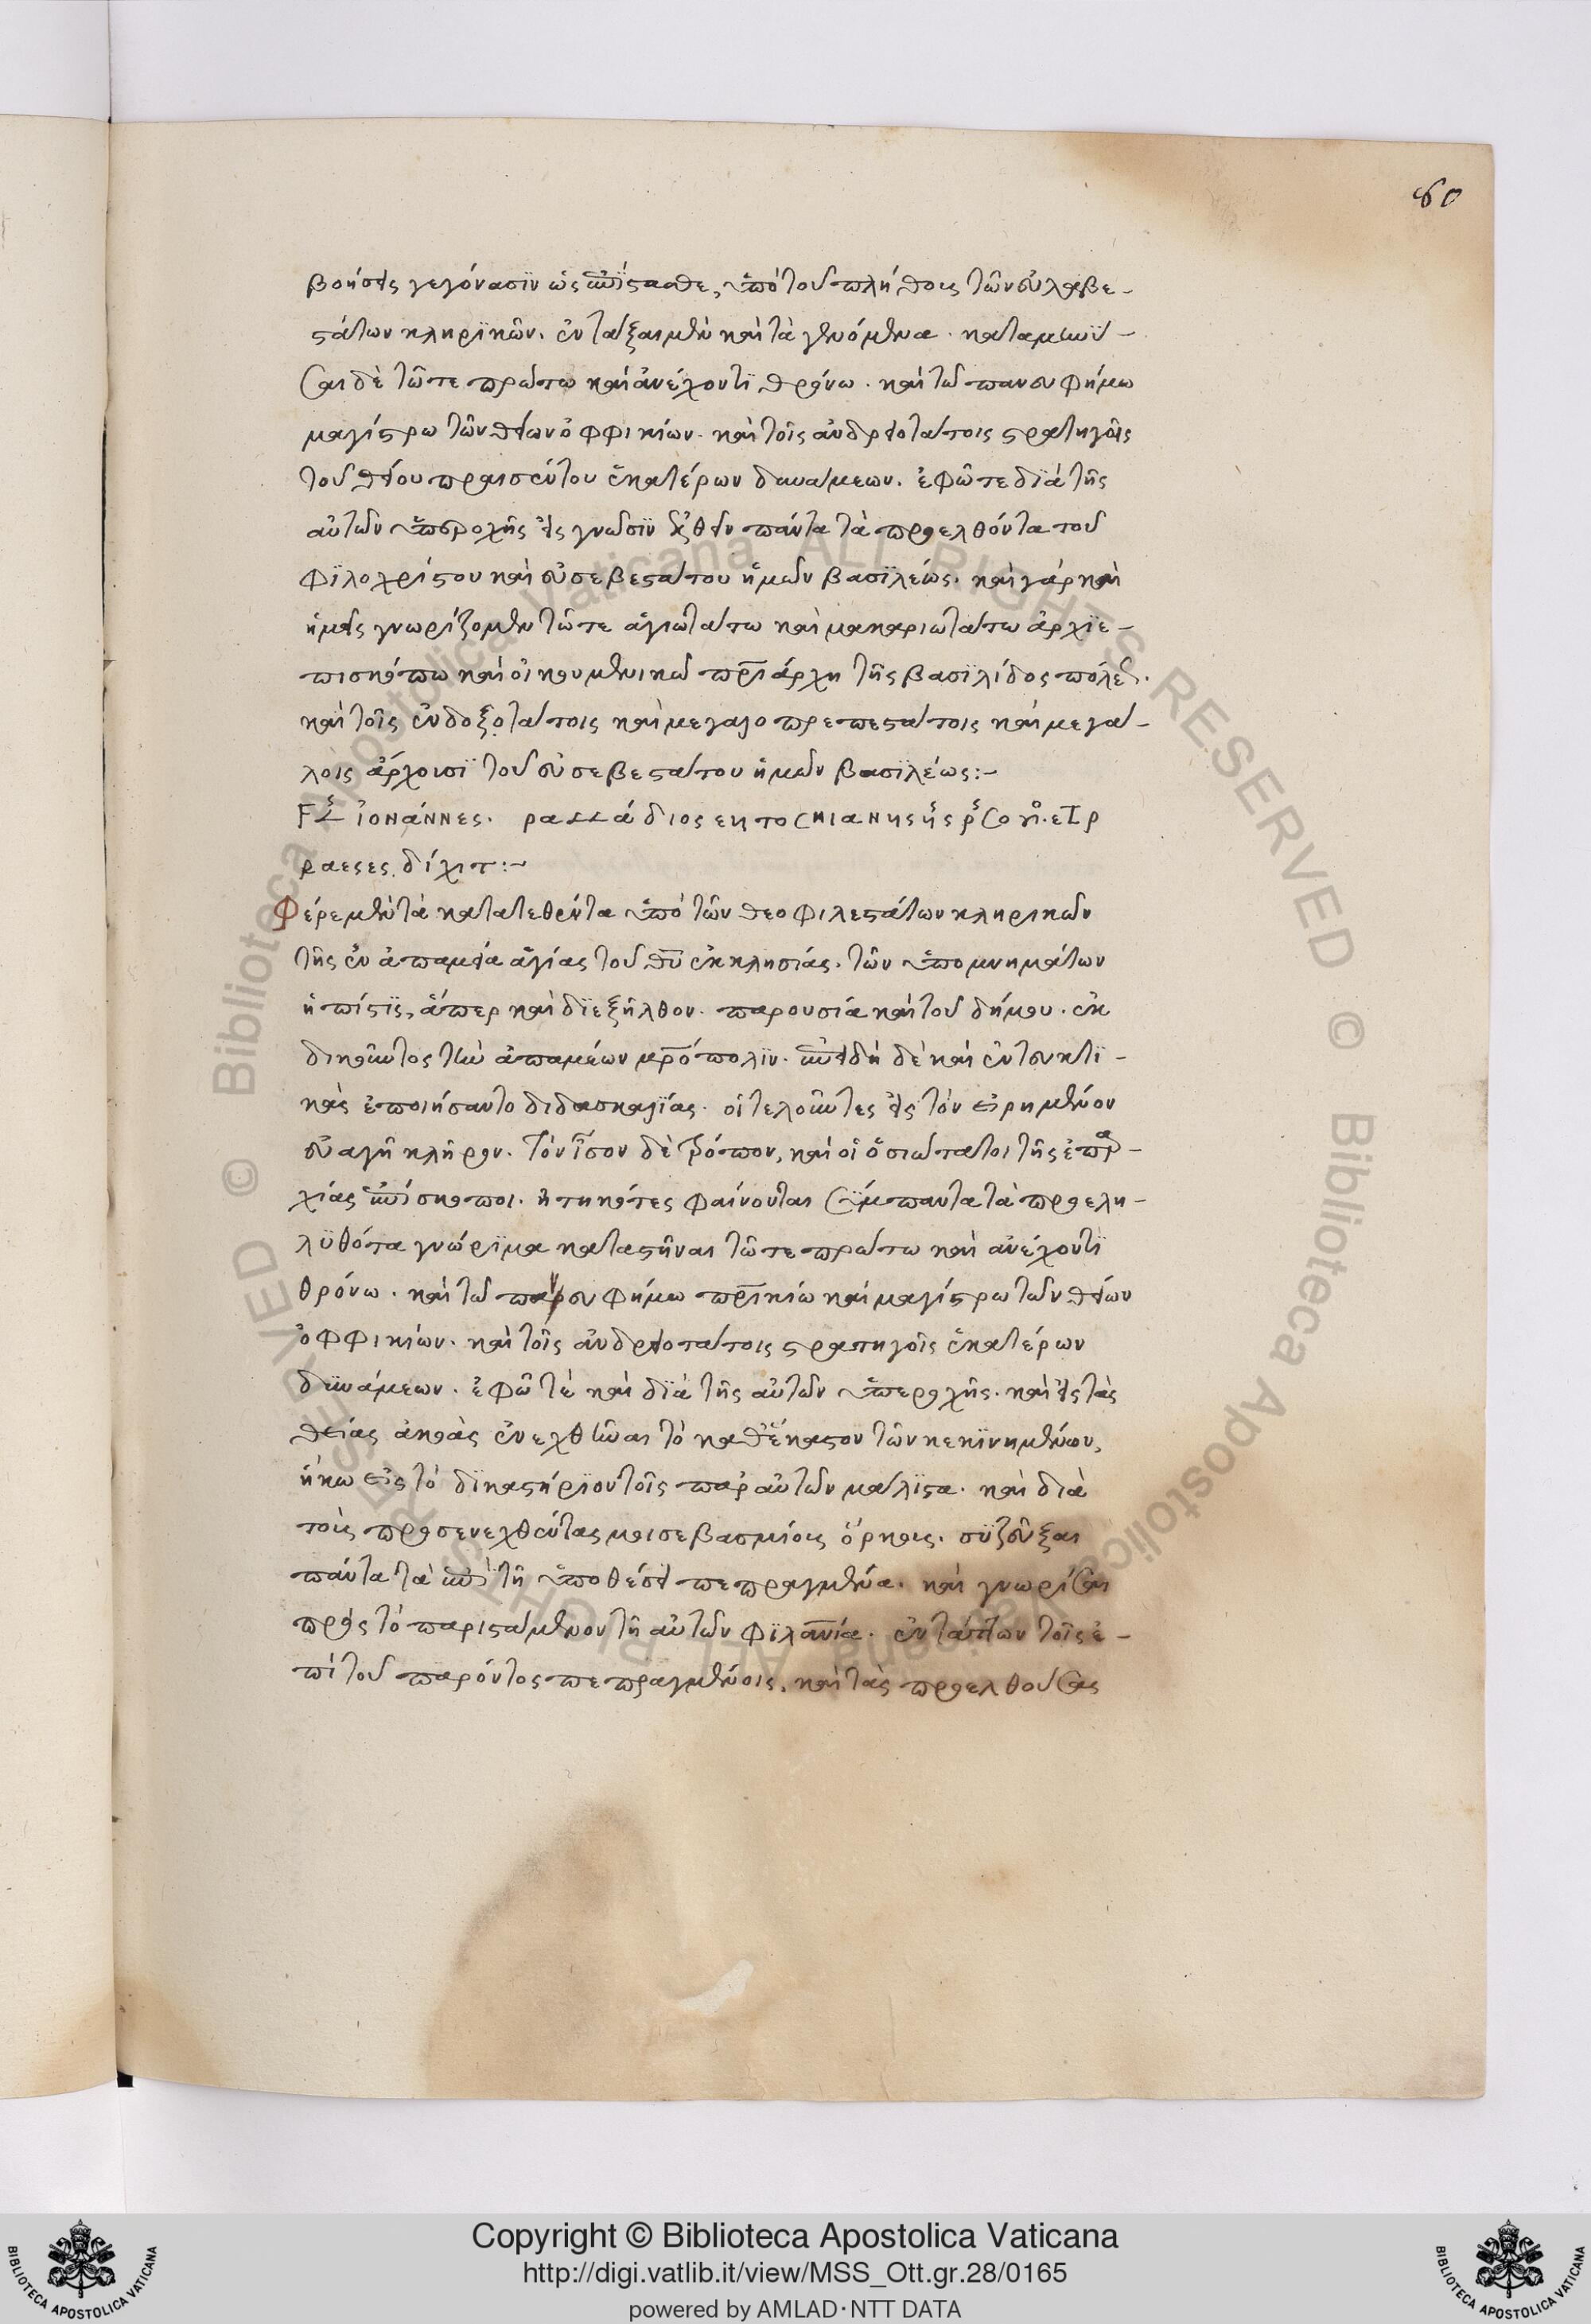 60
βοήσεις γεγόνασϊν ὡς ἐπίστασθε, ὑπὸ τοῦ πλήθους τῶν εὐλαβε-
στάτων κληρϊκῶν. ἐντάξαι μὲν καὶ τὰ γενόμενα. καταμηνῦ-
σαι δὲ τῶ τε πρώτω καὶ ἀνέχοντι θρόνω. καὶ τῶ πανευφήμω
μαγίστρω τῶν θείων ὀφφικίων. καὶ τοῖς ἀνδρειοτάτοις στρατηγοῖς
τοῦ θείου πραισέντου ἑκατέρων δυνάμεων. ἐφῶ τε δϊὰ τῆς
αὐτῶν ὑπεροχῆς εἰς γνῶσϊν ἐλθεῖν πάντα τὰ προελθόντα τοῦ
φϊλοχρίστου καὶ εὐσεβεστάτου ἡμῶν βασϊλέως. καὶ γάρ καὶ
ἡμεῖς γνωρίζομεν τῶ τε ἁγιωτάτω καὶ μακαριωτάτω ἀρχϊε-
πισκόπω καὶ οἰκουμενικῶ πρϊάρχη τῆς βασϊλίδος πόλεως.
καὶ τοῖς ἐνδοξοτάτοις καὶ μεγαλοπρεπεστάτοις καὶ μεγά-
λοις ἄρχουσϊ τοῦ εὐσεβεστάτου ἡμῶν βασϊλέως:-
ραεσες δίχιτ:-
Φέρε μὲν τὰ κατατεθέντα ὑπὸ τῶν θεοφιλεστάτων κληρικῶν
τῆς ἐν ἀπαμεία ἁγίας τοῦ θυ ἐκκλησίας. τῶν ὑπομνημάτων
ἡ πίστϊς, ἅπερ καὶ δϊεξῆλθον. παρουσία καὶ τοῦ δήμου. ἐκ
δικοῦντος τὴν ἀπαμέων μρόπολϊν. ἐπειδὴ δὲ καὶ ἐντευκτϊ-
κὰς ἐποιήσαντο διδασκαλίας. οἱ τελοῦντες εἰς τὸν εἰρημένον
εὐαγῆ κλῆρον. τὸν ἴσον δὲ τρόπον, καὶ οἱ ὁσιώτατοι τῆς ἐπαρ-
χίας ἐπίσκοποι. ἠτηκότες φαίνονται σύμπαντα τὰ προελη-
λϋθότα γνώρϊμα καταστῆναι τῶ τε πρώτω καὶ ἀνέχοντϊ
θρόνω. καὶ τῶ πανευφήμω πρικίω καὶ μαγίστρω τῶν θείων
ὀφφικίων. καὶ τοῖς ἀνδρειοτάτοις στρατηγοῖς ἑκατέρων
δϋνάμεων. ἐφῶ τὲ καὶ δϊὰ τῆς αὐτῶν ὑπεροχῆς. καὶ εἰς τὰς
θείας ἀκοὰς ἐνεχθῆναι τὸ καθέκαστον τῶν κεκϊνημένων,
ἥκω εἰς τὸ δϊκαστήρϊον τοῖς παρ αὐτῶν μάλϊστα. καὶ διὰ
τοὺς προσενεχθέντας μοι σεβασμίους ὅρκους. σϋζεῦξαι
πάντα τὰ ἐπὶ τῆ ὑποθέσει πεπραγμένα. καὶ γνωρίσαι
πρὸς τὸ παριστάμενον τῆ αὐτῶν φϊλανία. ἐντάττων τοῖς ἐ-
πὶ τοῦ παρόντος πεπραγμένοις, καὶ τὰς προελθούσας
Copyright © Biblioteca Apostolica Vaticana
http://digi.vatlib.it/view/MSS_Ott.gr.28/0165
powered by AMLAD·NTT DATA